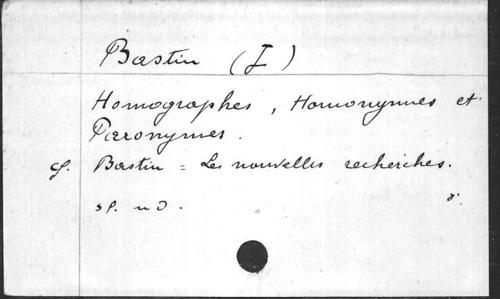 Bastin (J)
Homographes, Homonymes et
Paronymes.
cf. Bastin = Les nouvelles recherches.
sp. n d.